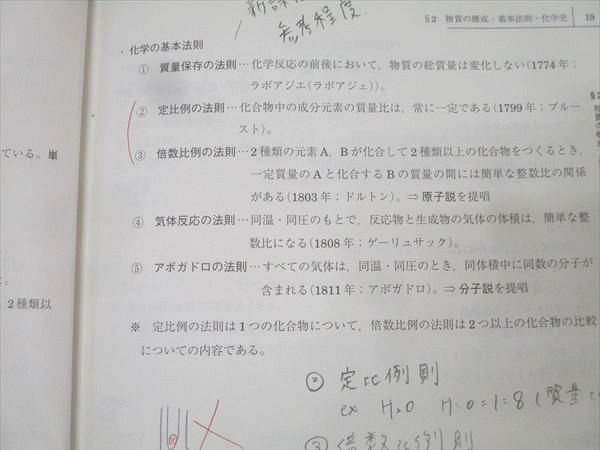 §2 物質の構成・基本法則・化学史 19
参考程度
・化学の基本法則
① 質量保存の法則…化学反応の前後において，物質の総質量は変化しない(1774年；
ラボアジエ(ラボアジェ))。
② 定比例の法則…化合物中の成分元素の質量比は，常に一定である(1799年；プルー
スト)。
③ 倍数比例の法則…2種類の元素A，Bが化合して2種類以上の化合物をつくるとき，
一定質量のAと化合するBの質量の間には簡単な整数比の関係
がある(1803年；ドルトン)。⇒原子説を提唱
④ 気体反応の法則…同温・同圧のもとで，反応物と生成物の気体の体積は，簡単な整
数比になる(1808年；ゲーリュサック)。
⑤ アボガドロの法則…すべての気体は，同温・同圧のとき，同体積中に同数の分子が
含まれる(1811年；アボガドロ)。⇒分子説を提唱
※ 定比例の法則は1つの化合物について，倍数比例の法則は2つ以上の化合物の比較
についての内容である。
② 定比例則
ex H₂O H=O=1=8 (質量
③ 倍数比例則
ている。単
2種類以
§2